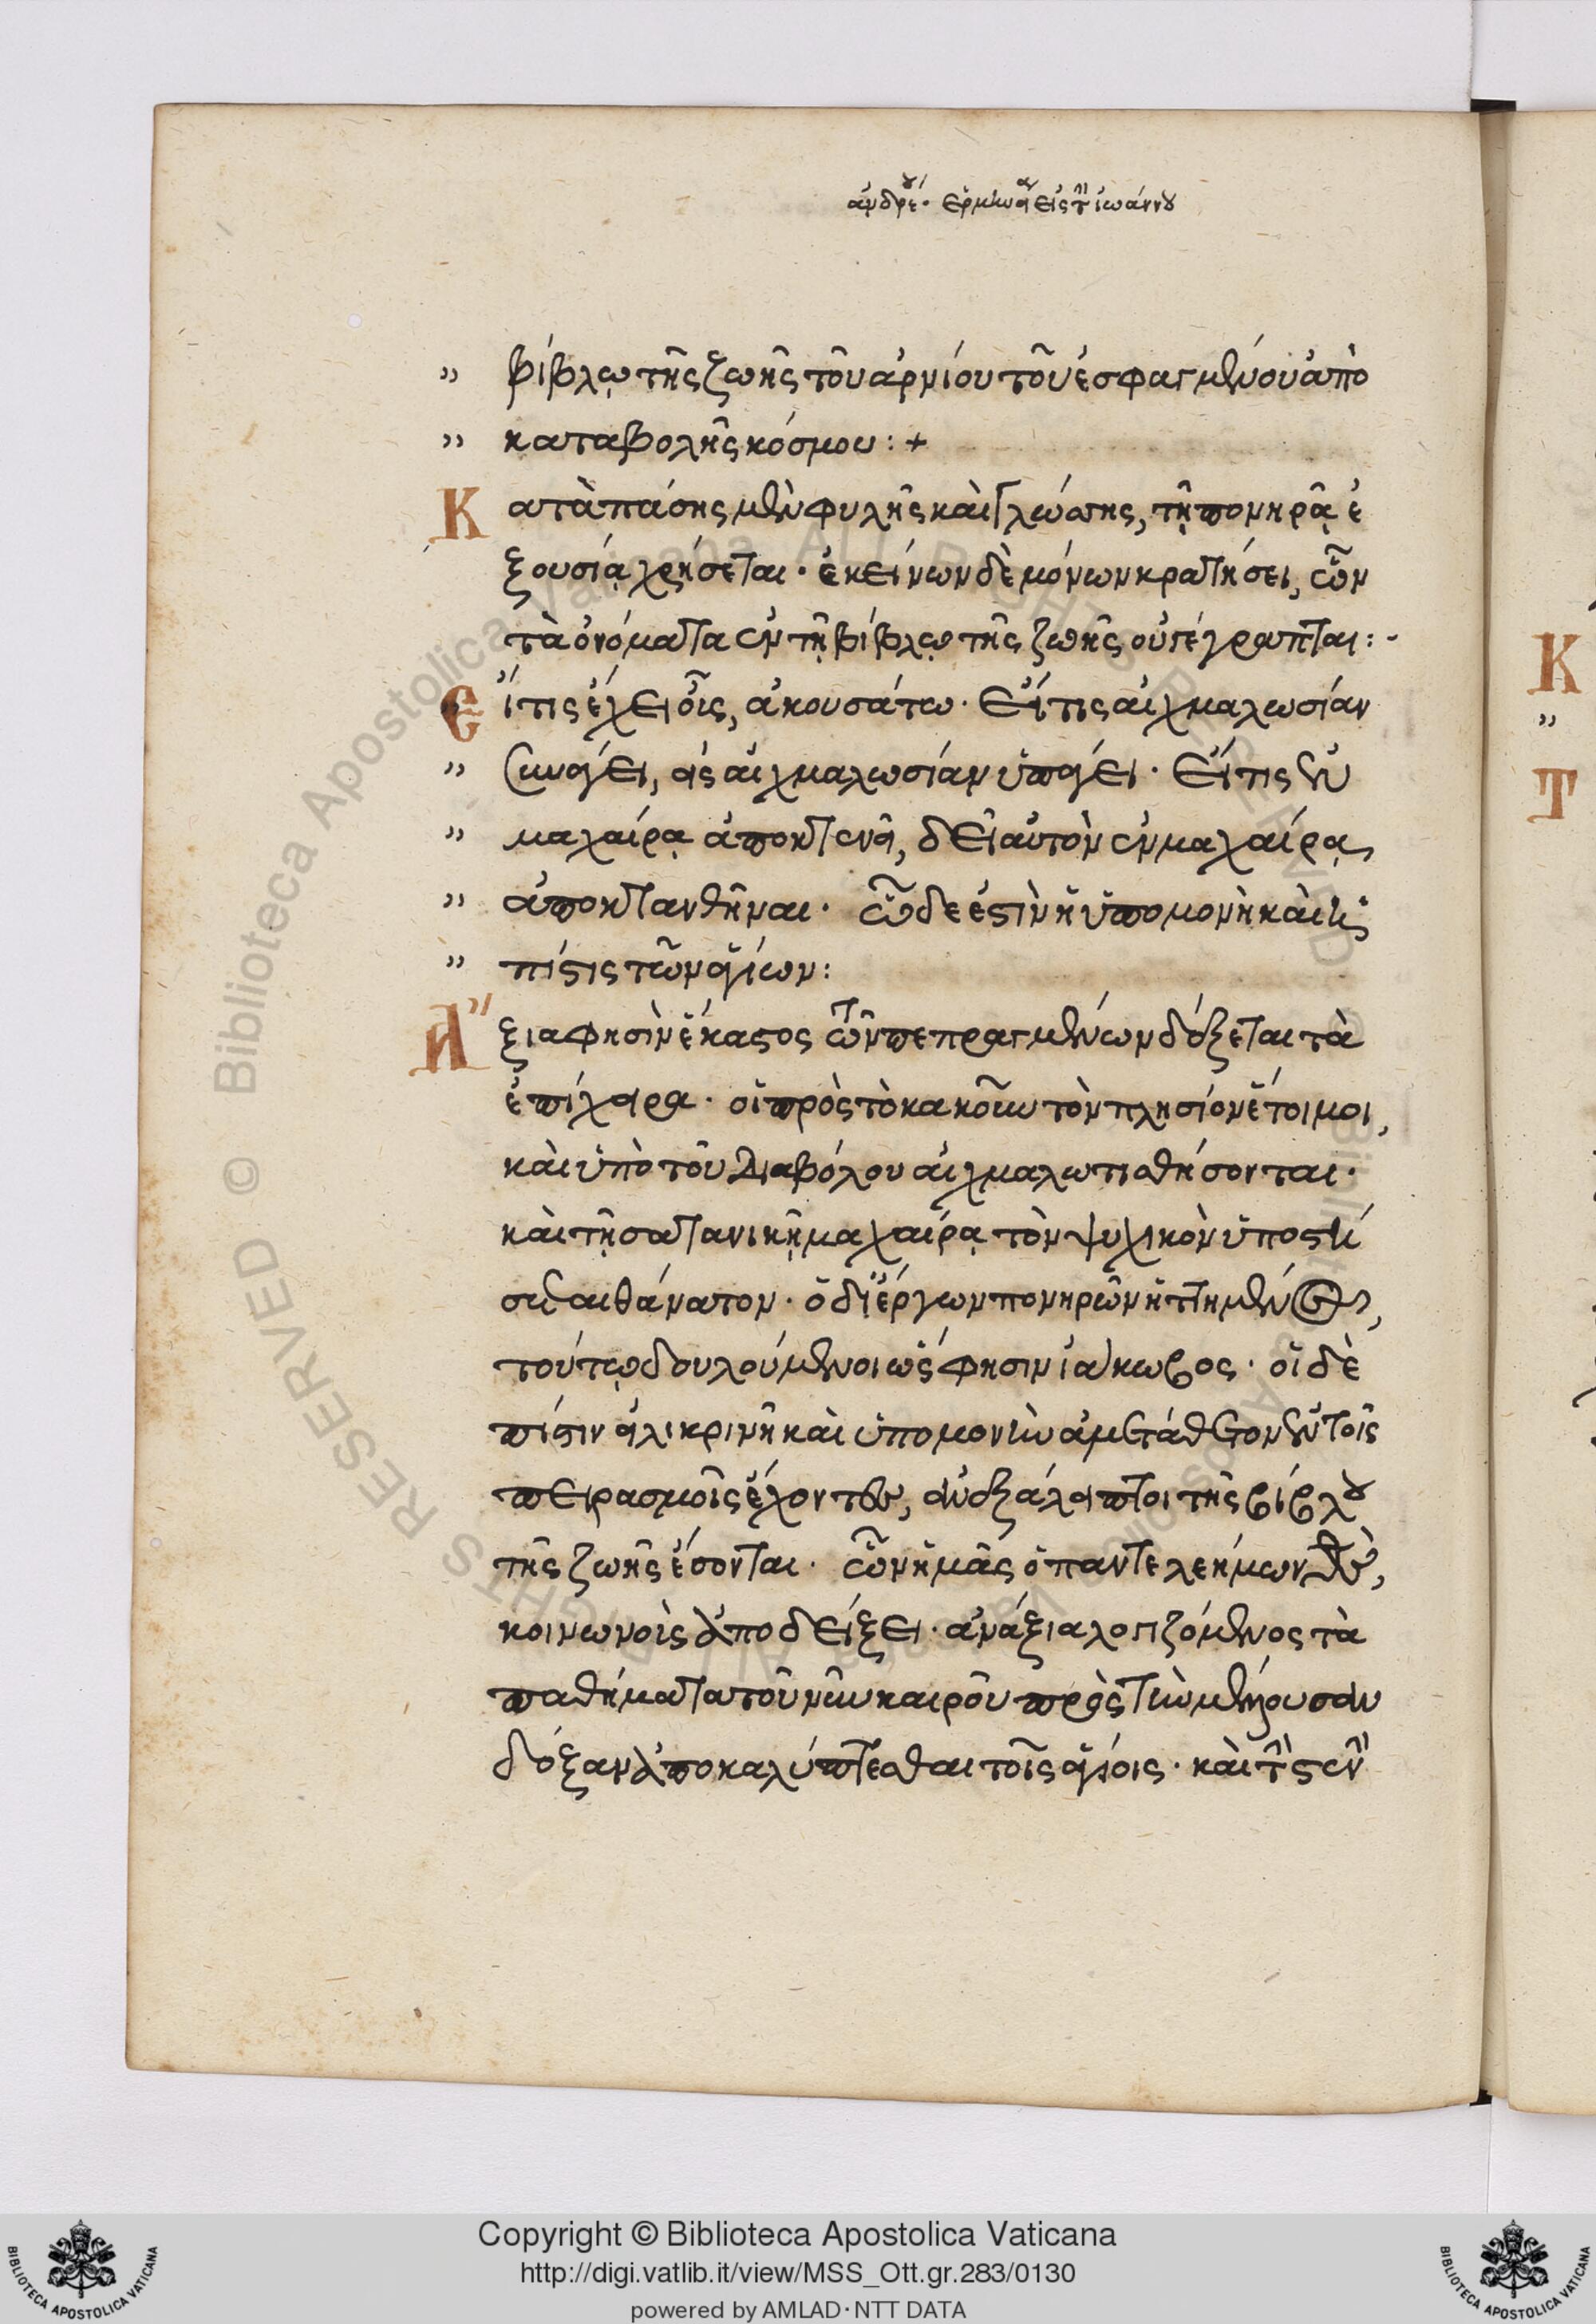 ἀνδρέου ἑρμηνεία εἰς τὴν ἰωάννου
βίβλῳ τῆς ζωῆς τοῦ ἀρνίου τοῦ ἐσφαγμένου ἀπὸ
καταβολῆς κόσμου: +
Κατὰ πάσης μὲν φυλῆς καὶ γλώσσης, τῇ πονηρᾷ ἐ
ξουσίᾳ χρήσεται · ἐκείνων δὲ μόνων κρατήσει, ὧν
τὰ ὀνόματα ἐν τῇ βίβλῳ τῆς ζωῆς οὐ γέγραπται: -
Εἴ τις ἔχει οὖς, ἀκουσάτω · Εἴ τις αἰχμαλωσίαν
συνάγει, εἰς αἰχμαλωσίαν ὑπάγει · Εἴ τις ἐν
μαχαίρᾳ ἀποκτενεῖ, δεῖ αὐτὸν ἐν μαχαίρᾳ
ἀποκτανθῆναι · ὧδε ἐστὶν ἡ ὑπομονὴ καὶ ἡ
πίστις τῶν ἁγίων:
Ἄξια φησὶν ἕκαστος τῶν πεπραγμένων δέξεται τὰ
ἐπίχειρα · οἱ πρὸς τὸ κακοῦν τὸν πλησίον ἕτοιμοι,
καὶ ὑπὸ τοῦ διαβόλου αἰχμαλωτισθήσονται ·
καὶ τῇ σατανικῇ μαχαίρᾳ τὸν ψυχικὸν ὑποστή
σονται θάνατον · ᾧ δι' ἔργων πονηρῶν ἥττηνται,
τούτῳ δουλούμενοι ὥς φησιν ἰάκωβος · οἱ δὲ
πίστιν εἰλικρινῆ καὶ ὑπομονὴν ἀμετάθετον ἐν τοῖς
πειρασμοῖς ἔχοντες, ἀνεξάλειπτοι τῆς βίβλου
τῆς ζωῆς ἔσονται · ὧν ἡμᾶς ὁ παντελεήμων θς,
κοινωνοὺς ἀποδείξει · ἀνάξια λογιζόμενος τὰ
παθήματα τοῦ νῦν καιροῦ πρὸς τὴν μέλλουσαν
δόξαν ἀποκαλύπτεσθαι τοῖς ἁγίοις · καὶ τὴν στενὴν
Copyright © Biblioteca Apostolica Vaticana
http://digi.vatlib.it/view/MSS_Ott.gr.283/0130
powered by AMLAD·NTT DATA